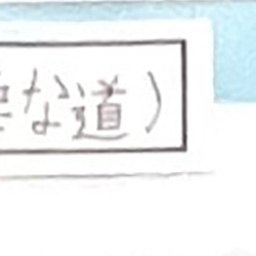 な道)